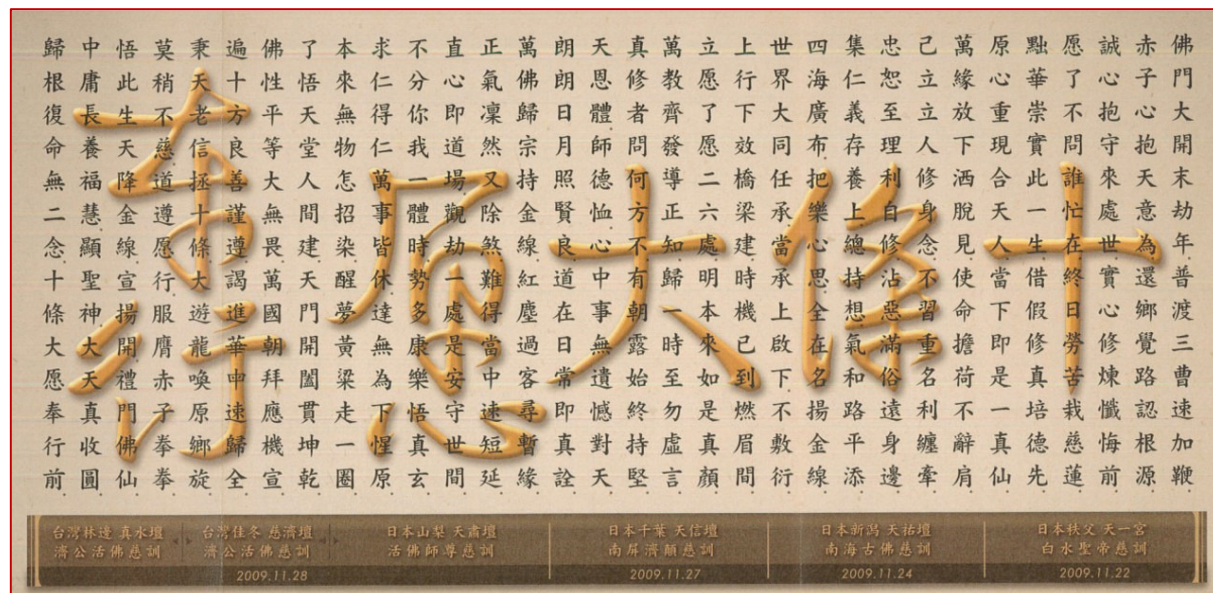 佛門大開末劫年普渡三曹速加鞭
赤子心抱天意為還鄉覺路認根源
誠心抱守來處世實心修煉懺悔前
愿了不問誰忙在終日勞苦栽慈蓮
點華崇實此一生借假修真培德先
原心重現合天人當下即是一真仙
萬緣放下洒脫見使命擔荷不辭肩
己立立人修身念不習重名利纏牽
忠恕至理利自修沾惡滿俗遠身邊
集仁義存養上總持想氣和路平添
四海廣布把樂心思全在名揚金線
世界大同任承當承上啟下不敷衍
上行下效橋梁建時機己到燃眉間
立愿了愿二六處明本來如是真顏
萬教齊發導正知歸一時至勿虛言
真修者問何方不有朝露始終持堅
天恩體師德恤心中事無遺憾對天
朗朗日月照賢良道在日常即真詮
萬佛歸宗持金線紅塵過客尋暫緣
正氣凜然又除煞難得當中速短延
直心即道場觀劫一處是安守世間
不分你我一體時勢多康樂悟真玄
求仁得仁萬事皆休達無為下惺原
本來無物怎招染醒夢黃粱走一圈
了悟天堂人間建天門開闔貫坤乾
佛性平等大無畏萬國朝拜應機宣
遍十方良善謹遵謁進華申速歸全
秉天老信拯十條大遊龍喚原鄉旋
莫稍不慈道遵愿行服膺赤子拳拳
悟此生天降金線宣揚開禮門佛仙
中庸長養福慧顯聖神大天真收圓
歸根復命無二念十條大愿奉行前
十條大愿
奉行
日本秩父 天一宮
白水聖帝慈訓
2009.11.22
日本新潟 天祐壇
南海古佛慈訓
2009.11.24
日本千葉 天信壇
南屏濟顛慈訓
2009.11.27
日本山梨 天肅壇
活佛師尊慈訓
台灣佳冬 慈濟壇
濟公活佛慈訓
台灣林邊 真水壇
濟公活佛慈訓
2009.11.28